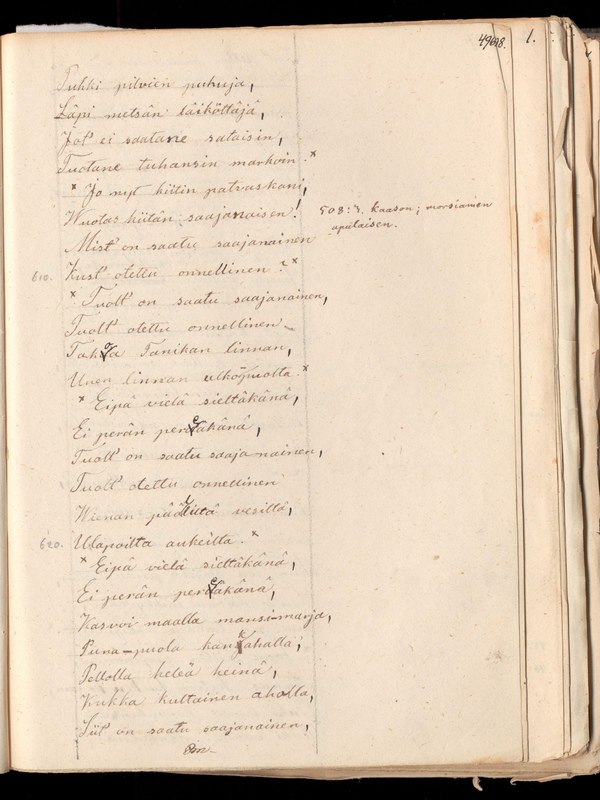 49698. 1.
Puhki pilvien puhuja,
Läpi metsän läiköttäjä,
Jol' ei saatane sataisin,
Tuotane tuhansin markoin. x
x Jo nyt kiitin patvaskani,
Wuotas kiitän saajanaisen!
508:3. kaason; morsiamen
apulaisen.
Mist' on saatu saajanainen
610. Kust' otettu onnellinen? x
x Tuolt' on saatu saajanainen,
Tuolt' otettu onnellinen –
Takoa Tanikan linnan,
Uuen linnan ulkopuolta. x
x Eipä vielä sieltäkänä,
Ei perän perеäkänä,
Tuolt' on saatu saaja-nainen,
Tuolt' otettu onnellinen
Wienan päältä vesiltä,
620. Ulapoilta aukeilta. x
x Eipä vielä sieltäkänä,
Ei perän pereäkänä,
Kasvoi maalla mansi-marja,
Puna-puola kankahalla;
Pellolla heleä heinä,
Kukka kultainen aholla,
Siit' on saatu saajanainen,